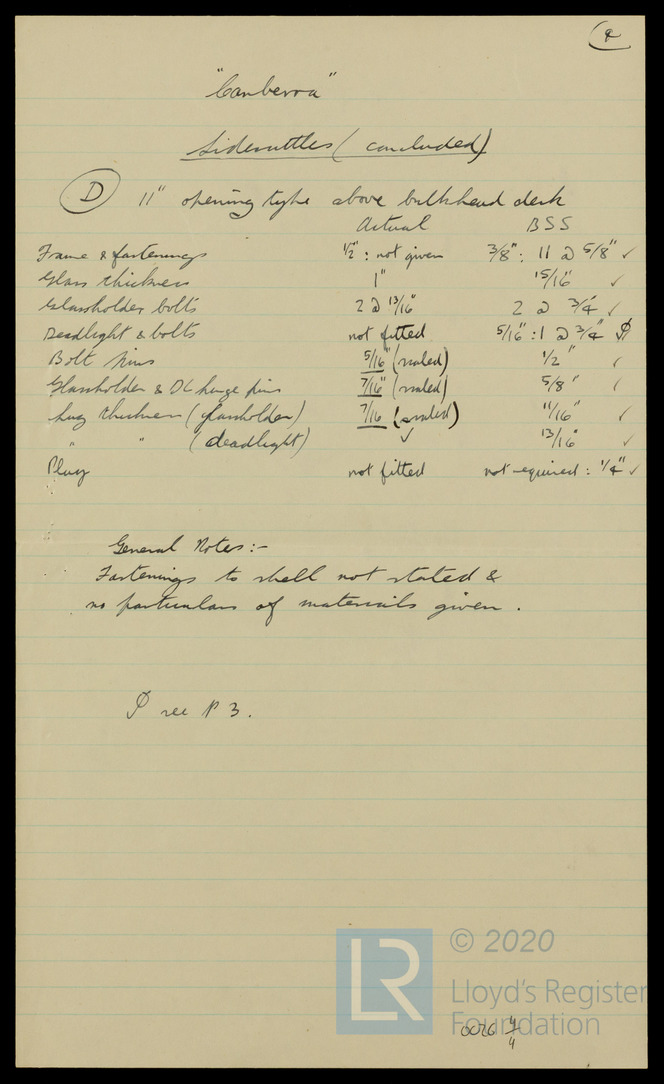 4
"Canberra"
Sidescuttles (concluded)
D 11" opening type above bulkhead deck
Actual BSS
Frame & fastenings 1/2" : not given 3/8" : 11 @ 5/8" ✓
Glass thickness 1" 15/16" ✓
Glassholder bolts 2 @ 13/16" 2 @ 3/4" ✓
Deadlight & bolts not fitted 5/16" : 1 @ 3/4"
Bolt pins 5/16" (scaled) 1/2" ✓
Glassholder & DL hinge pins 7/16" (scaled) 5/8" ✓
Lug thickness (glassholder) 7/16 (scaled) 11/16" ✓
" " (deadlight) ✓ 13/16" ✓
Plug not fitted not required : 1/4" ✓
General Notes :-
Fastenings to shell not stated &
no particulars of materials given .
see P 3 .
© 2020
LR
Lloyd's Register
Foundation
0026 4/4